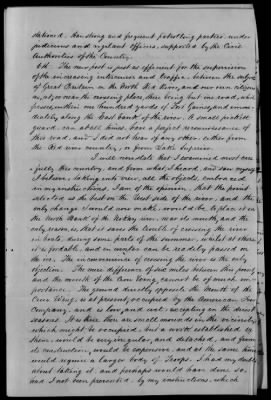 stationed. Has strong and frequent patrolling parties under
judicious and vigilant officers, supported by the Civil
Authorities of the Country.
6th. The new post is just as efficient for the supervision
of the increasing intercourse and traffic, between the subjects
of Great Britain on the North Red River, and our own citizens
as, at, or near the crossing place, there being but one road, which
passes, within one hundred yards of Fort Gaines, and imme-
diately along the East bank of the river. A small picket
guard, can at all times, have a perfect reconnaissance of
this road, and I did not hear of any other, either from
the Red river country, or from Lake Superior.
I will reinstate that I examined most care-
fully this country, and from what I heard, and saw myself
I believe, taking into view, all the objects, embraced
in my instructions, I am of the opinion, that the point
selected is the best on the West side of the river, and the
only change I would now make, would be to place it on
the North Bank of the Nokay river, near its mouth, and the
only reason is, that it saves the trouble of crossing the river
in boats, during some parts of the summer, whilst at others
it is fordable, and in winter can be readily passed on
the ice. The inconvenience of crossing the river is the only
objection. The mere difference of six miles between this point
and the mouth of the Crow Wing, cannot be of much im-
portance. The ground directly opposite the Mouth of the
Crow Wing, is at present, occupied by the American Fur
Company, and is low, and wet, excepting in the driest
seasons. It is true there are small mounds in the vicinity
which might be occupied, but a work established up
them would be very irregular, and detached, and from
its construction, would be expensive, and at the same time
would require a larger body of Troops. I had my thoughts
about taking it, and perhaps would have done so,
had I not been prevented, by my instructions, which